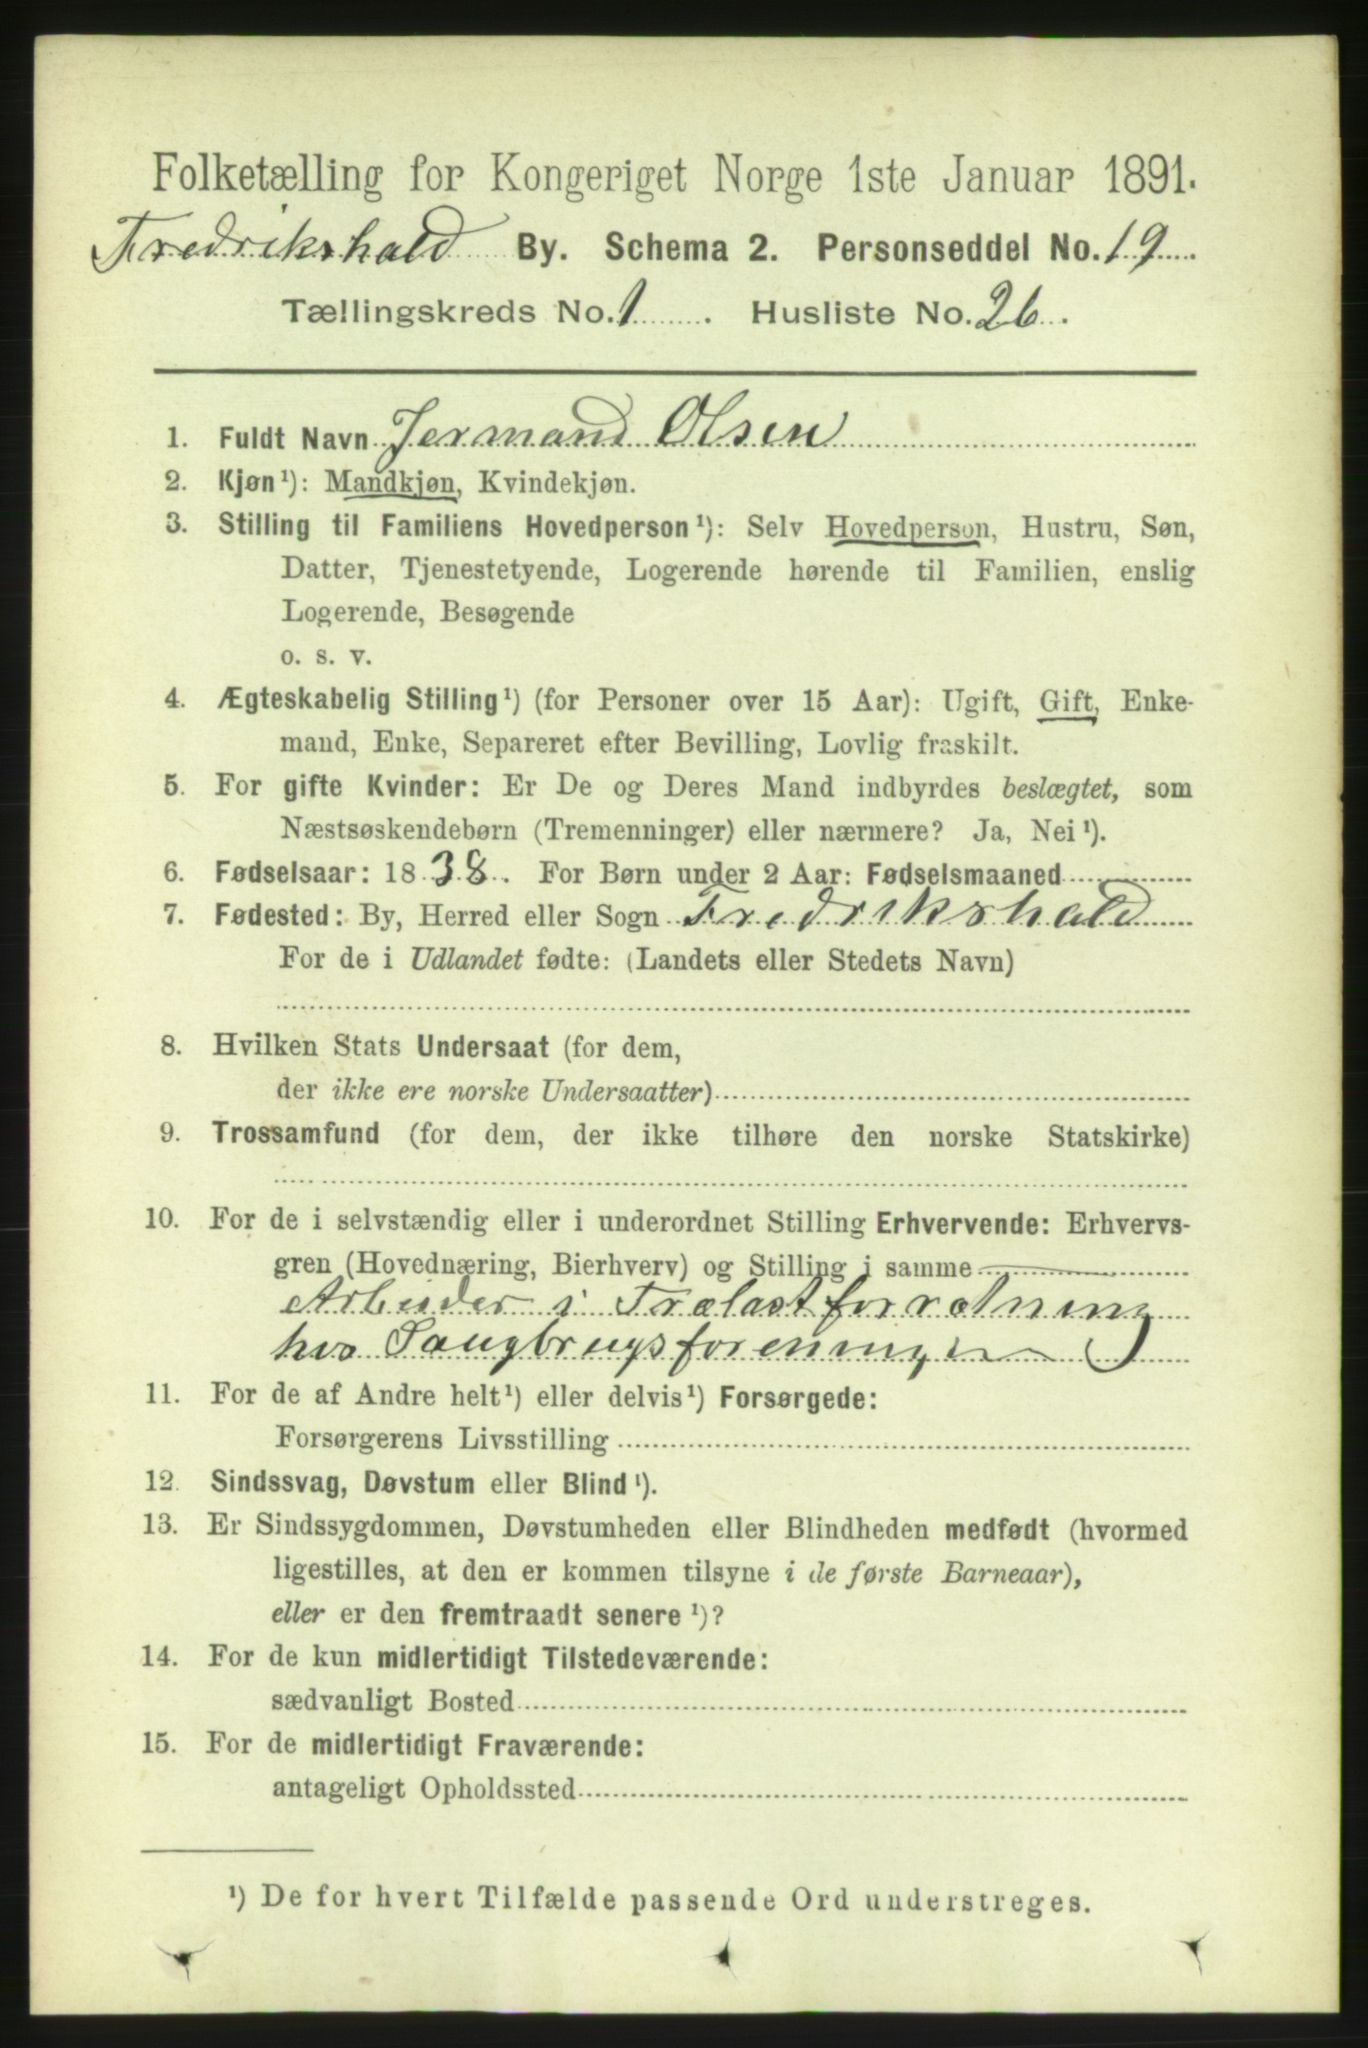 Folketælling for Kongeriget Norge 1ste Januar 1891.
Fredrikshald By. Schema 2. Personseddel No. 19
Tællingskreds No. 1. Husliste No. 26.
1. Fuldt Navn Jermand Olsen
2. Kjøn¹): Mandkjøn, Kvindekjøn.
3. Stilling til Familiens Hovedperson¹): Selv Hovedperson, Hustru, Søn,
Datter, Tjenestetyende, Logerende hørende til Familien, enslig
Logerende, Besøgende
o. s. v.
4. Ægteskabelig Stilling¹) (for Personer over 15 Aar): Ugift, Gift, Enke-
mand, Enke, Separeret efter Bevilling, Lovlig fraskilt.
5. For gifte Kvinder: Er De og Deres Mand indbyrdes beslægtet, som
Næstsøskendebørn (Tremenninger) eller nærmere? Ja, Nei¹).
6. Fødselsaar: 1838. For Børn under 2 Aar: Fødselsmaaned
7. Fødested: By, Herred eller Sogn Fredrikshald
For de i Udlandet fødte: (Landets eller Stedets Navn)
8. Hvilken Stats Undersaat (for dem,
der ikke ere norske Undersaatter)
9. Trossamfund (for dem, der ikke tilhøre den norske Statskirke)
10. For de i selvstændig eller i underordnet Stilling Erhvervende: Erhvervs-
gren (Hovednæring, Bierhverv) og Stilling i samme
Arbeider i Trælastforretning
hos Saugbrugsforeningen
11. For de af Andre helt¹) eller delvis¹) Forsørgede:
Forsørgerens Livsstilling
12. Sindssvag, Døvstum eller Blind¹).
13. Er Sindssygdommen, Døvstumheden eller Blindheden medfødt (hvormed
ligestilles, at den er kommen tilsyne i de første Barneaar),
eller er den fremtraadt senere¹)?
14. For de kun midlertidigt Tilstedeværende:
sædvanligt Bosted
15. For de midlertidigt Fraværende:
antageligt Opholdssted
¹) De for hvert Tilfælde passende Ord understreges.